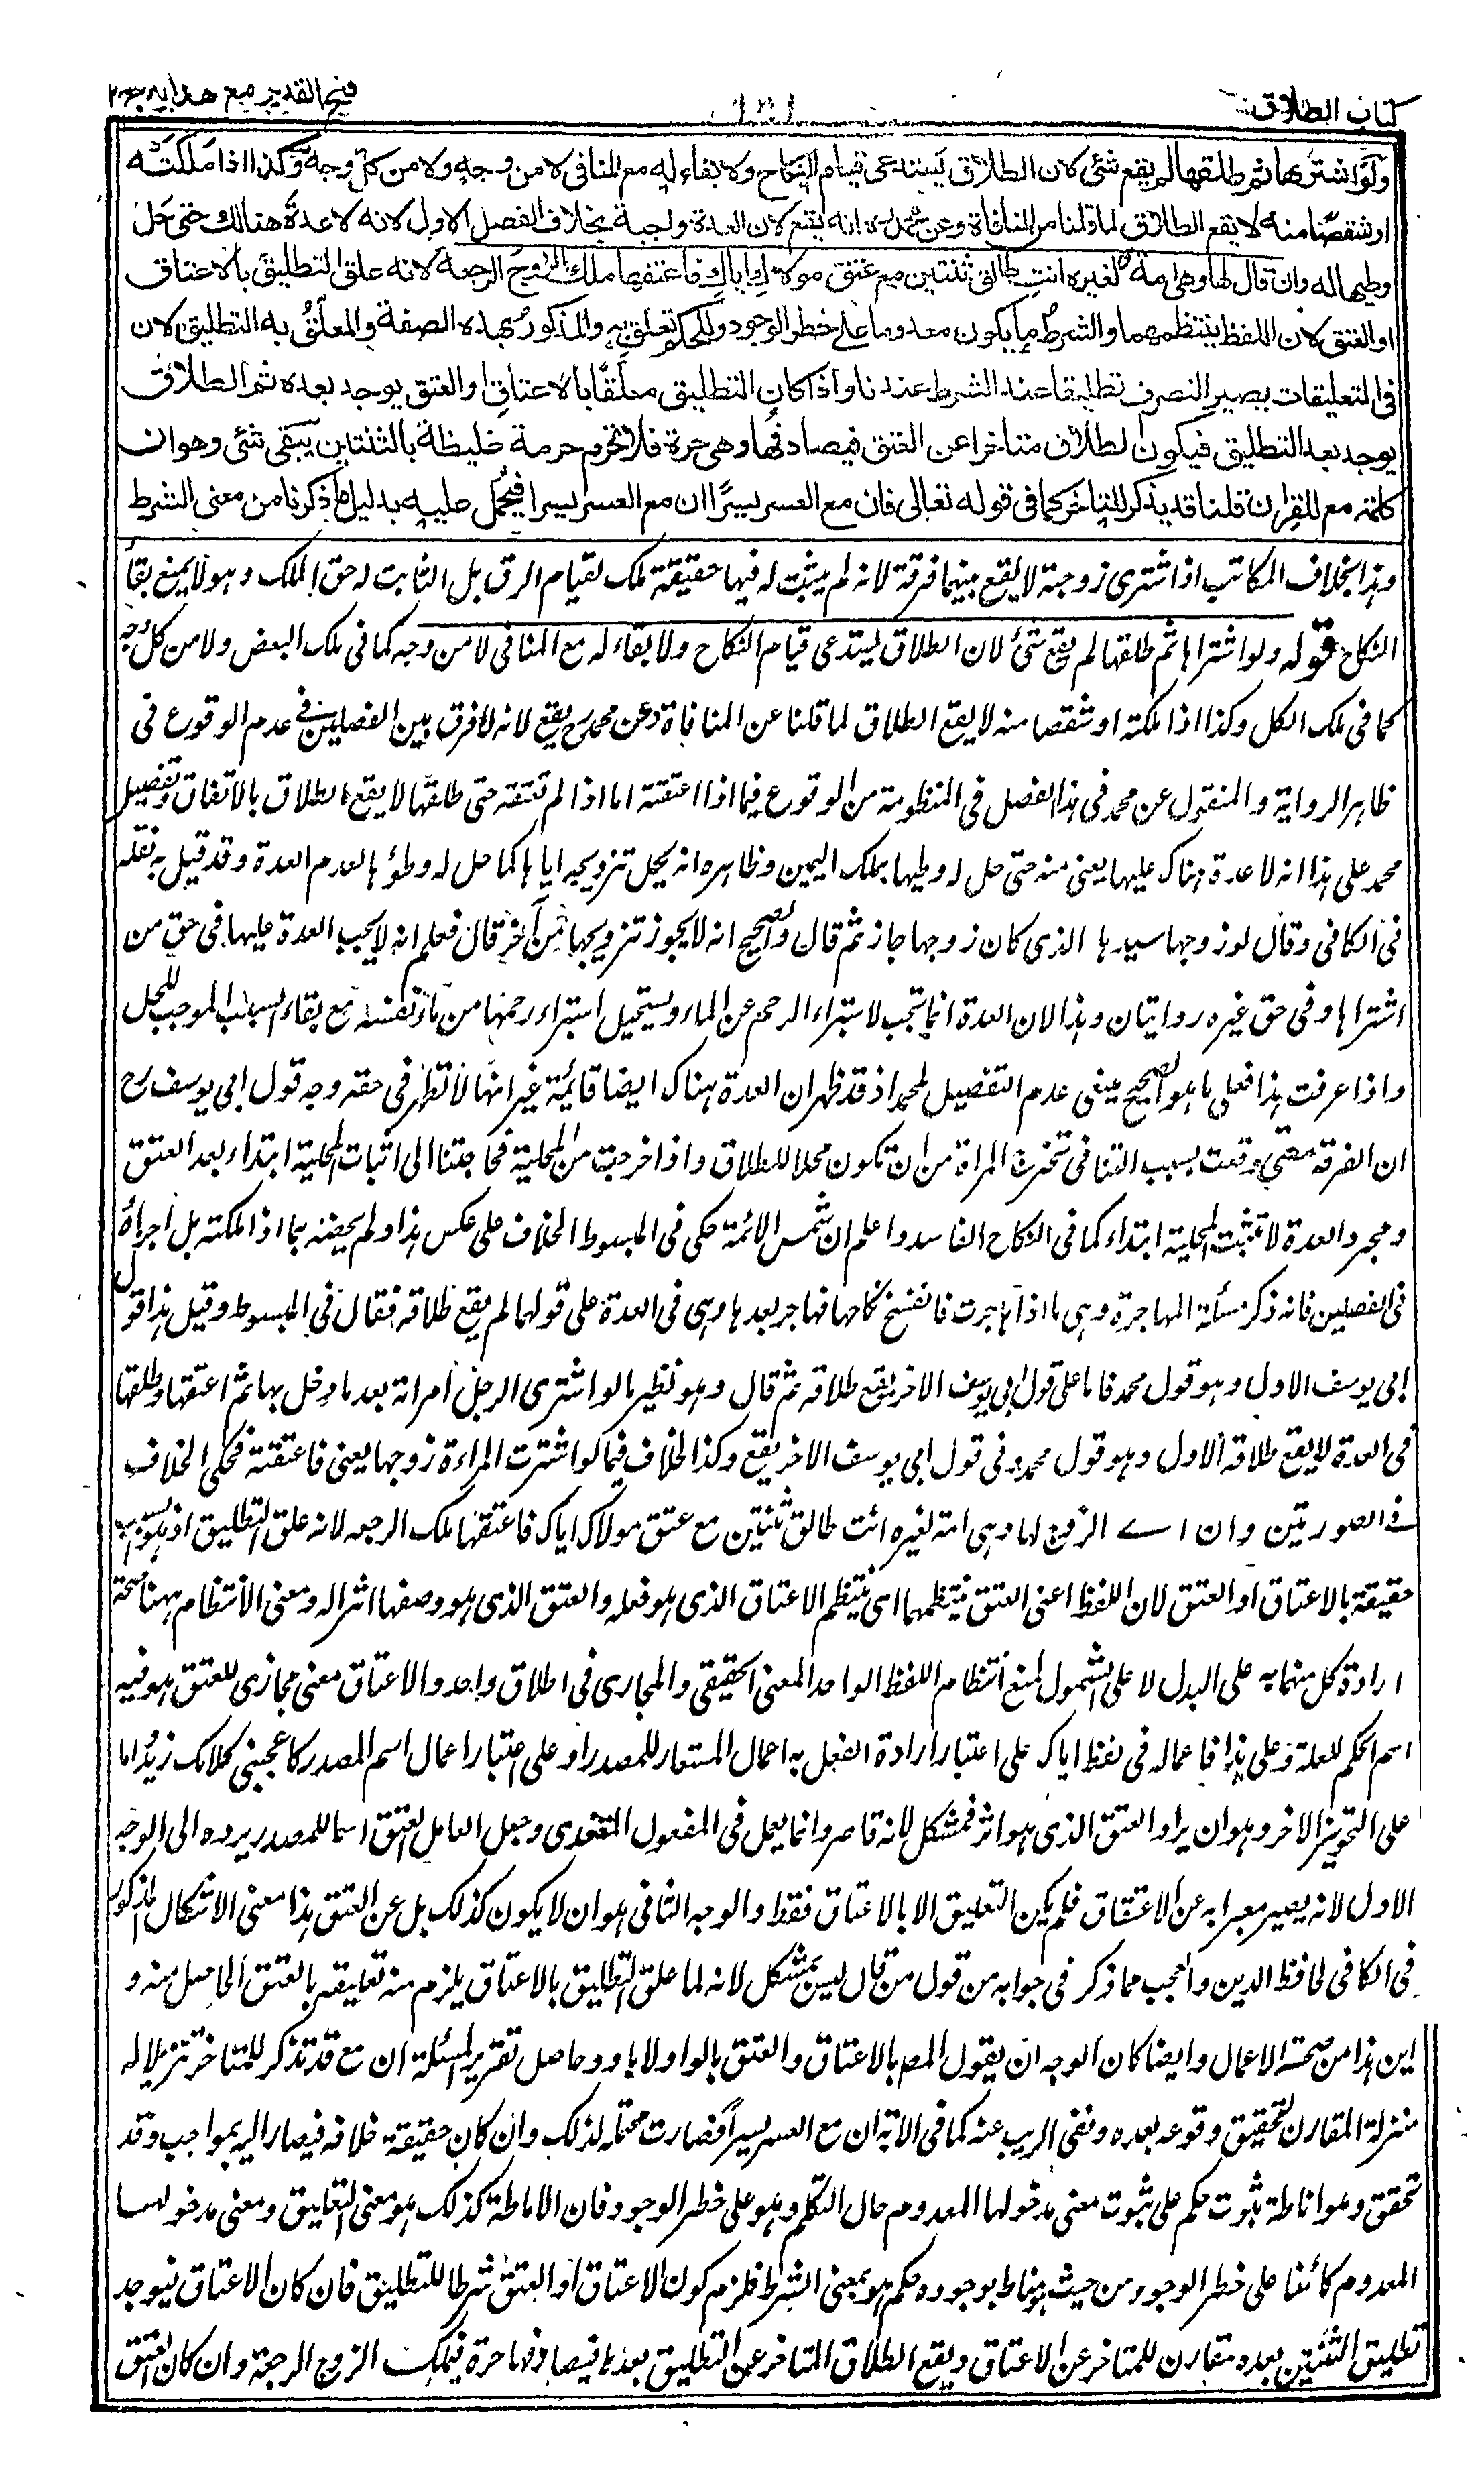 كتاب الطلاق
فتح القدير مع هدايه ج٢
ولو اشتريها ثم طلقها لم يقع شئ لان الطلاق يستدعى قيام النكاح ولا بقاء له مع المنافى لا من وجه ولا من كل وجه وكذا اذا ملكته
او شقصا منه لا يقع الطلاق لما قلنا من المنافاة وعن محمد انه يقع لان العدة واجبة بخلاف الفصل الاول لانه لا عدة هنالك حتى حل
وطيها له وان قال لها وهى امة لغيره انت طالق ثنتين مع عتق مولاك اياك فاعتقها ملك الزوج الرجعة لانه علق التطليق بالاعتاق
او العتق لان اللفظ ينتظمهما والشرط ما يكون معدوما على خطر الوجود وللحكم تعلق به والمذكور بهذه الصفة والمعلق به التطليق لان
فى التعليقات يصير التصرف تطليقا عند الشرط عندنا واذا كان التطليق معلقا بالاعتاق او العتق يوجد بعده ثم الطلاق
يوجد بعد التطليق فيكون لطلاق متاخرا عن العتق فيصادفها وهى حرة فلا تحرم حرمة غليظة بالثنتين يبقى شئ وهو ان
كلمة مع للقران قلنا قد يذكر للتاخر كما فى قوله تعالى فان مع العسر يسرا ان مع العسر يسرا فيحمل عليه بدليل ما ذكرنا من معنى الشرط
وهذا بخلاف المكاتب اذا اشترى زوجته لا يقع بينهما فرقة لانه لم يثبت له فيها حقيقة ملك لقيام الرق بل الثابت له حق الملك وهو لا يمنع بقاء
النكاح قوله ولو اشتراها ثم طلقها لم يقع شئ لان الطلاق يستدعى قيام النكاح ولا بقاء له مع المنافى لا من وجه كما فى ملك البعض ولا من كل وجه
كما فى ملك الكل وكذا اذا ملكته او شقصا منه لا يقع الطلاق لما قلنا عن المنافاة وعن محمد رح يقع لانه لا فرق بين الفصلين فى عدم الوقوع فى
ظاهر الرواية والمنقول عن محمد فى هذا الفصل فى المنظومة من الوقوع فيما اذا اعتقته اما اذا لم تعتقه حتى طلقها لا يقع الطلاق بالاتفاق وتفصيل
محمد على هذا انه لا عدة هناك عليها يعنى منه حتى حل له وطيها بملك اليمين وظاهره انه يحل تزويجه اياها كما حل له وطؤها لعدم العدة وقد قيل به نقله
فى الكافى وقال لو زوجها سيدها الذى كان زوجها جاز ثم قال والصحيح انه لا يجوز تزويجها من آخر قال فعلم انه لا يجب العدة عليها فى حق من
اشتراها وفى حق غيره روايتان وهذا لان العدة انما تجب لاستبراء الرحم عن الماء ويستحيل استبراء رحمها من ماء نفسه مع بقاء السبب الموجب للحل
واذا عرفت هذا فعلى ما هو الصحيح ينبغى عدم التفصيل لمحمد اذ قد ظهر ان العدة هناك ايضا قائمة غير انها لا تظهر فى حقه وجه قول ابى يوسف رح
ان الفرقة متى وقعت بسبب التنافى تخرج المراة من ان تكون محلا للطلاق واذا خرجت من المحلية فحاجتنا الى اثبات المحلية ابتداء بعد العتق
ومجرد العدة لا تثبت المحلية ابتداء كما فى النكاح الفاسد واعلم ان شمس الائمة حكى فى المبسوط الخلاف على عكس هذا ولم يخصه بما اذا ملكته بل اجراه
فى الفصلين فانه ذكر مسألة المهاجرة وهى ما اذا هاجرت فانفسخ نكاحها فهاجر بعدها وهى فى العدة على قولهما لم يقع طلاقه فقال فى المبسوط وقيل هذا قول
ابى يوسف الاول وهو قول محمد فاما على قول ابى يوسف الاخر يقع طلاقه ثم قال وهو نظير ما لو اشترى الرجل امراته بعد ما دخل بها ثم اعتقها وطلقها
فى العدة لا يقع طلاقه الاول وهو قول محمد وفى قول ابى يوسف الاخر يقع وكذا الخلاف فيما لو اشترت المراءة زوجها يعنى فاعتقته فحكى الخلاف
فى الصورتين وان اے الزوج لها وهى امة لغيره انت طالق ثنتين مع عتق مولاك اياك فاعتقها ملك الرجعه لانه علق التطليق اذ هو السبب
حقيقة بالاعتاق او العتق لان اللفظ اعنى العتق ينتظمهما اى ينتظم الاعتاق الذى هو فعله والعتق الذى هو وصفها اثرا له ومعنى الانتظام ههنا صحة
ارادة كل منهما به على البدل لا على الشمول لمنع انتظام اللفظ الواحد المعنى الحقيقى والمجازى فى اطلاق واحد والاعتاق معنى مجازى للعتق هو فيه
اسم الحكم للعلة وعلى هذا فاعماله فى لفظ اياك على اعتبار ارادة الفعل به اعمال المستعار للمصدر او على اعتبار اعمال اسم المصدر كاعجبنى كلامك زيدا اما
على التجويز الاخر وهو ان يراد العتق الذى هو اثر فمشكل لانه قاصر وانما يعمل فى المفعول المتعدى وجعل العامل العتق اسما للمصدر يرده الى الوجه
الاول لانه يصير معبرا به عن الاعتقاق فلم يكن التعليق الا بالاعتاق فقط والوجه الثانى هو ان لا يكون كذلك بل عن العتق هذا معنى الاشكال المذكور
فى الكافى لحافظ الدين واعجب مما ذكر فى جوابه من قول من قال ليس بمشكل لانه لما علق التطليق بالاعتاق يلزم منه تعليقه بالعتق الحاصل منه و
اين هذا من صحة الاعمال وايضا كان الوجه ان يقول المصـ بالاعتاق والعتق بالواو لا باو وحاصل تقرير المسئلة ان مع قد تذكر للمتاخر تنزيلا له
منزلة المقارن لتحقيق وقوعه بعده ونفى الريب عنه كما فى الاية ان مع العسر يسرا فصارت محتملة لذلك وان كان حقيقة خلافه فيصار اليه بموجب وقد
تحقق وهو اناطة ثبوت حكم على ثبوت معنى مدخولها المعدوم حال التكلم وهو على خطر الوجود فان الاناطة كذلك هو معنى التعليق ومعنى مدخولها
المعدوم كائنا على خطر الوجود من حيث هو مناط بوجوده حكم هو بمعنى الشرط فلزم كون الاعتاق او العتق شرطا للتطليق فان كان الاعتاق فيوجد
تطليق الثنتين بعده مقارن للمتاخر عن الاعتاق ويقع الطلاق المتاخر عن التطليق بعدها فيصادفها حرة فيملك الزوج الرجعة وان كان العتق